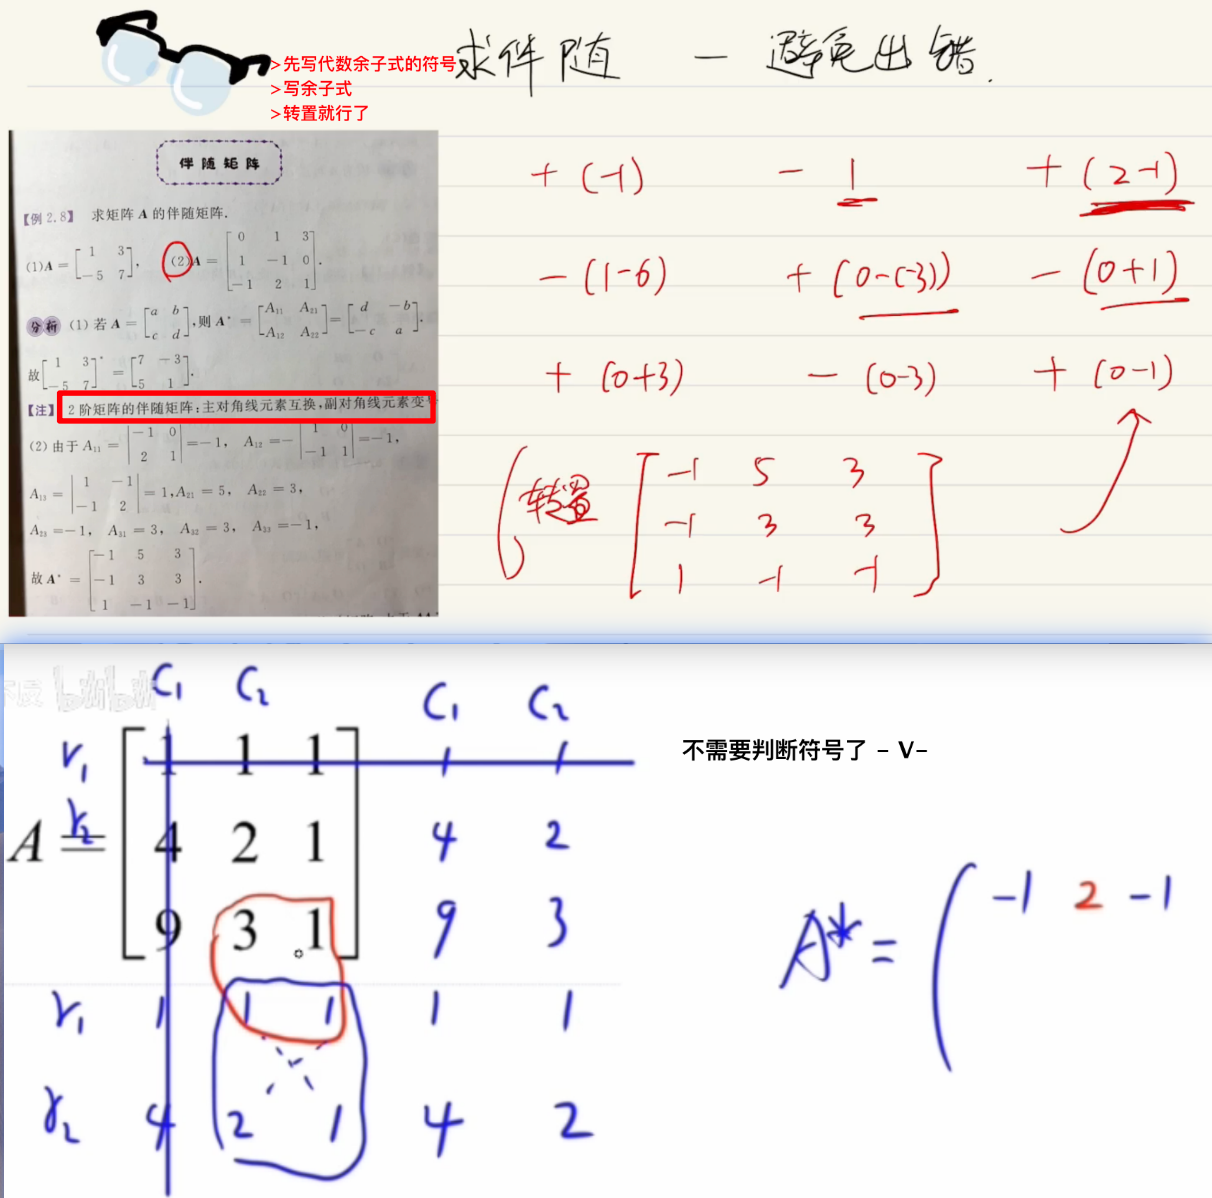 求伴随 — 避免出错.
>先写代数余子式的符号
>写余子式
>转置就行了
伴随矩阵
【例 2.8】 求矩阵 A 的伴随矩阵.
(1)A = [1 3 -5 7], (2)A = [0 1 3 1 -1 0 -1 2 1].
分析 (1) 若 A = [a b c d], 则 A* = [A11 A21 A12 A22] = [d -b -c a].
故 [1 3 -5 7]* = [7 -3 5 1].
【注】 2 阶矩阵的伴随矩阵:主对角线元素互换,副对角线元素变
(2) 由于 A11 = |-1 0 2 1| = -1, A12 = -|1 0 -1 1| = -1,
A13 = |1 -1 -1 2| = 1, A21 = 5, A22 = 3,
A23 = -1, A31 = 3, A32 = 3, A33 = -1,
故 A* = [-1 5 3 -1 3 3 1 -1 -1].
+ (-1) - 1 + (2-1)
- (1-6) + (0-(-3)) - (0+1)
+ (0+3) - (0-3) + (0-1)
(转置)
-1 5 3
-1 3 3
1 -1 -1
C1 C2 C1 C2
r1 1 1 1 1 1
A = r2 4 2 1 4 2
9 3 1 9 3
r1 1 1 1 1 1
r2 4 2 1 4 2
不需要判断符号了 - V-
A* = ( -1 2 -1